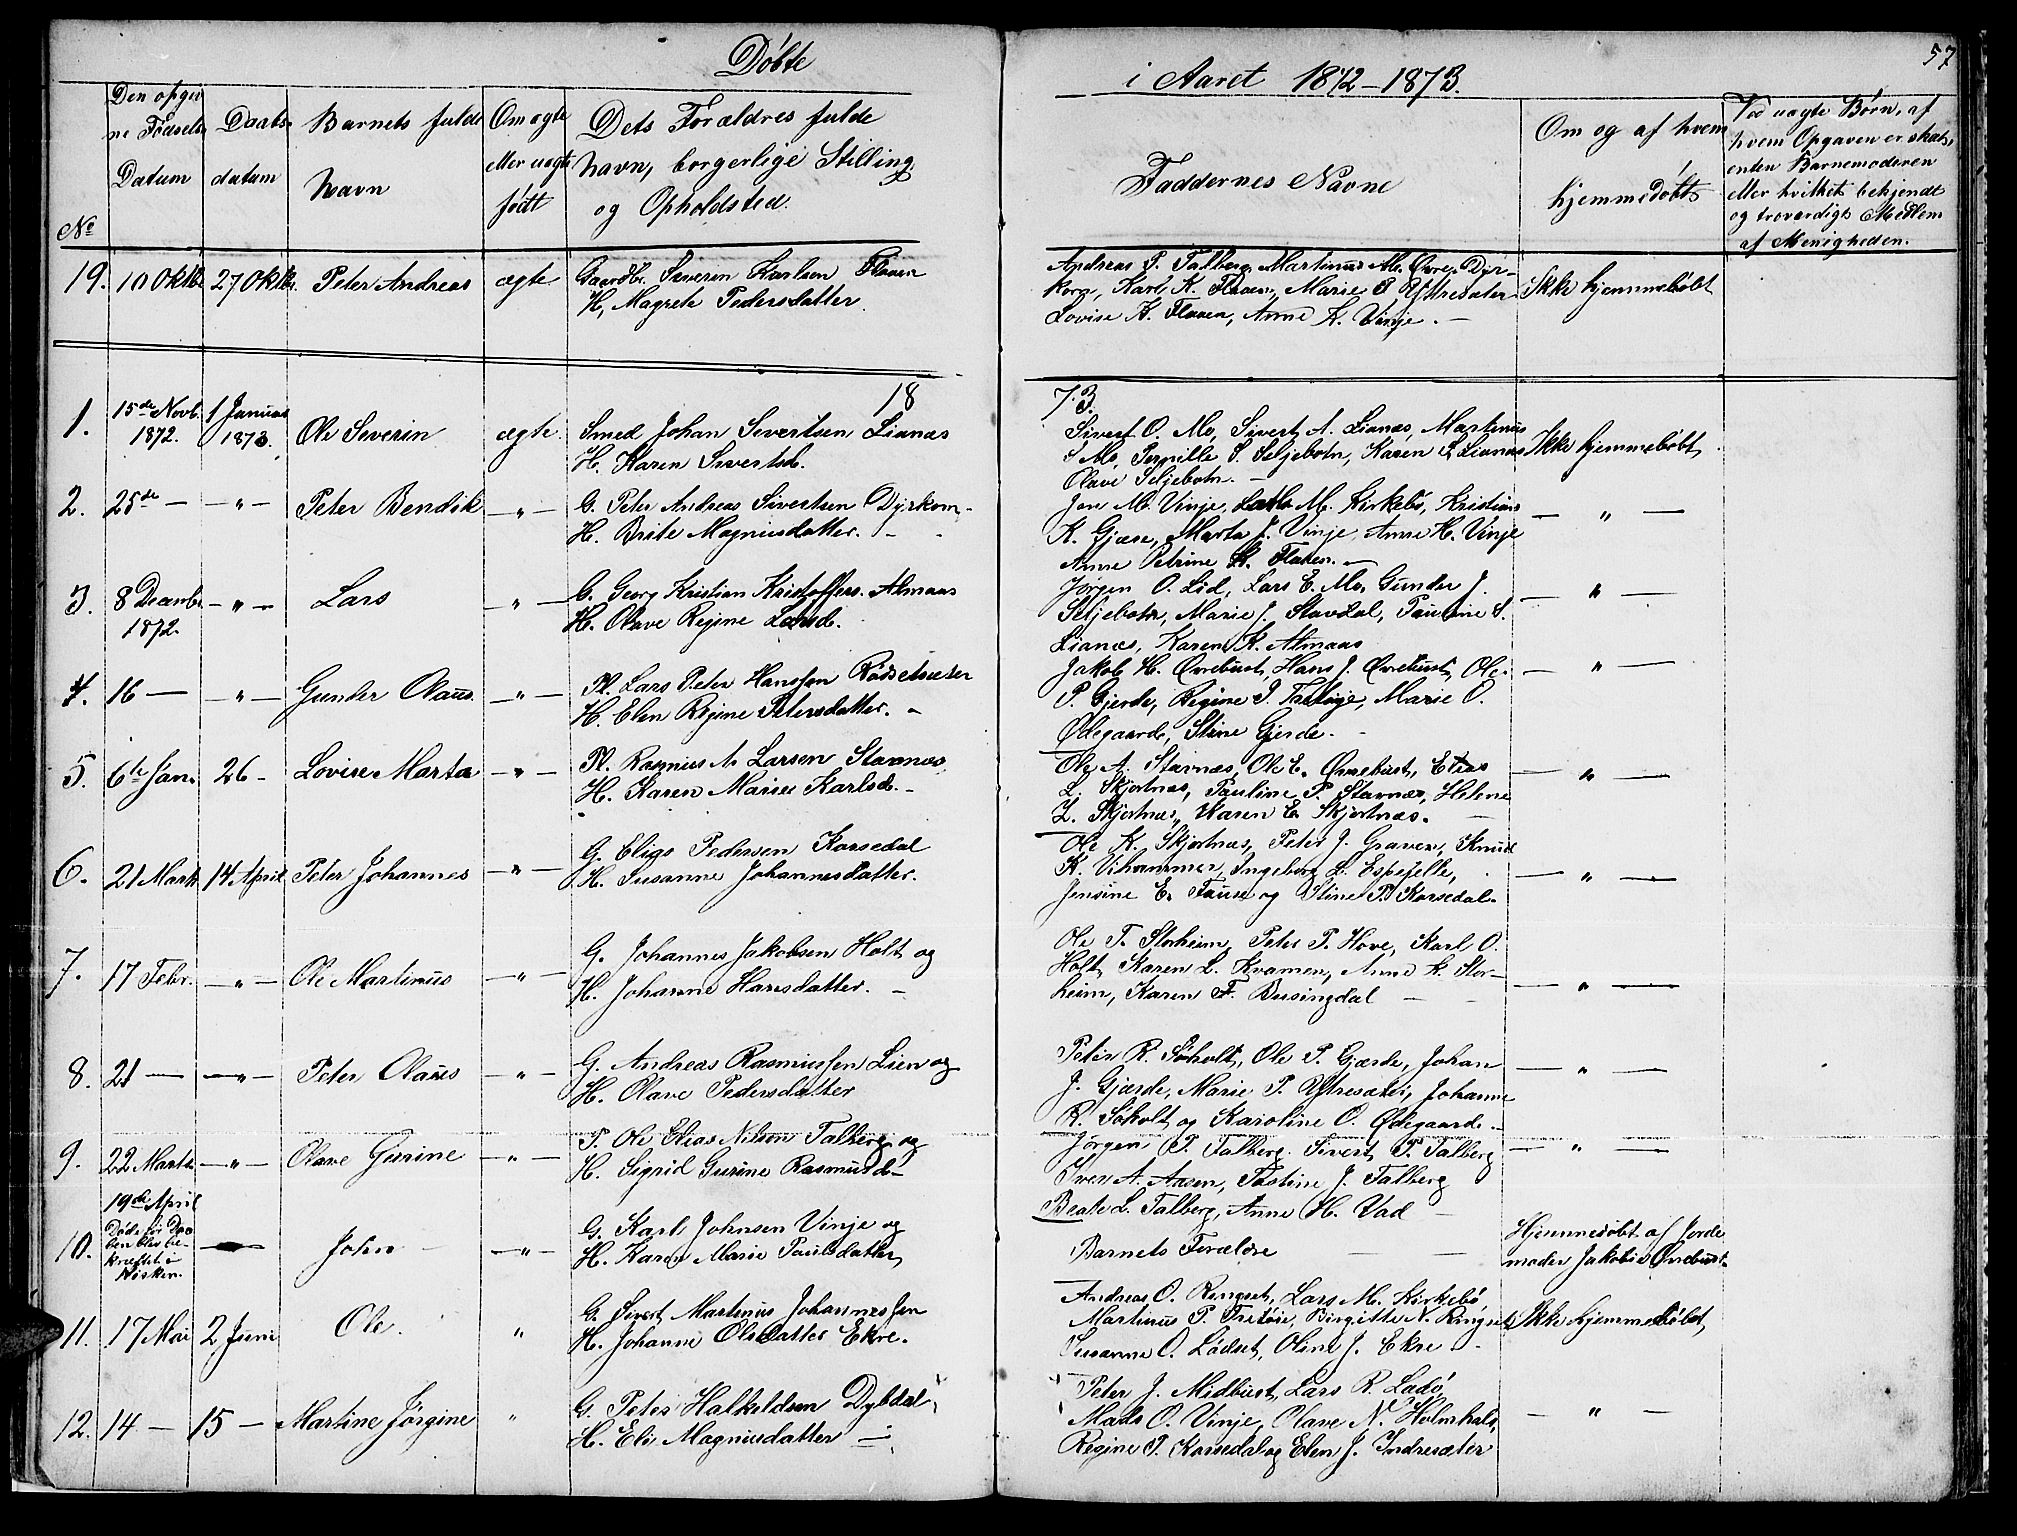 Døbte
i Aaret 1872-1873.
57
No
Den opgiv
ne Fødsels
Datum
Daabs
datum
Barnets fulde
navn
Om ægte
eller uægte
født
Dets Forældres fulde
navn, borgerlige Stilling
og Opholdsted.
Faddernes Navne
Om og af hvem
hjemmedøbt
Ved uægte Børn, af
hvem Opgaven er skeet,
enten Barnemoderen
eller hvilket bekjendt
og troværdigt Medlem
af Menigheden.
19. 10 Oktb. 27 Oktb. Peter Andreas ægte Gaardbr. Severin Karlsen Flaaen
H, Magrete Pedersdatter.
Andreas P. Talberg, Martinus M. Øvre Dyr-
korn, Karl K. Flaaen, Marie P. Yttresæter
Lovise K. Flaaen, Anne K. Vinje. —
Ikke hjemmedøbt
1873.
1. 15de Novb. 1872. 1 Januar 1873. Ole Severin ægte. Smed Johan Severtsen Lianæs
H. Karen Sivertsd.
Sivert O. Mo, Sivert A. Lianæs, Martinus
S Mo, Pernille S. Seljebotn, Karen S Lianæs
Olave Seljebotn. —
Ikke hjemmedøbt
2. 25de — — " — Peter Bendik — " — G. Peter Andreas Sivertsen Dyrkorn
H. Brite Magnusdatter. - -
Jon M. Vinje, Lars M. Kirkebø, Kristians
K. Gjære, Marta J. Vinje, Anne H. Vinje
Anne Petrine K. Flaaen. —
— " —
3. 8 Decemb. 1872. — " — Lars — " — G. Georg Kristian Kristoffers. Almaas
H. Olave Regine Larsd.
Jørgen O. Lid, Lars E. Mo, Gunder J.
Seljebotn, Marie J. Stavdal, Pauline S.
Lianæs, Karen K. Almaas
— " —
4. 16 — — " — Gunder Olaus. — " — Pl. Lars Peter Hanssen Rødsetsæter
H. Elen Regine Petersdatter. -
Jakob H. Øvrebust, Hans J. Øvrebust, Ole
P. Gjerde, Regine P. Marie O.
Ødegaard, Stine Gjerde. -
— " —
5. 6te Jan. 26 - Lovise Marta — " — Pl. Rasmus A. Larsen Stavnæs
H. Karen Marie Karlsd. -
Ole A. Stavnæs, Ole E. Øvrebust, Elias
L. Skjortnæs, Pauline P. Stavnæs, Helene
L. Skjortnæs, Karen E. Skjortnæs. —
— " —
6. 21 Marts 14 April Peter Johannes — " — G. Elias Pedersen Korsedal
H. Susanne Johannesdatter.
Ole K. Skjortnæs, Peter J. Graven, Knud
K. Vihammer, Ingeborg L. Espejelle,
Jensine E. Fause og Stine P. Korsedal.
— " —
7. 17 Febr. — " — Ole Martinus — " — G. Johannes Jakobsen Holt og
H. Johanne Hansdatter. -
Ole T. Storheim, Peter P. Hove, Karl O.
Holt, Karen L. Kvamen, Anne K. Stor-
heim, Karen F. Busingdal —
— " —
8. 21 — — " — Peter Olaus — " — G. Andreas Rasmussen Lien og
H. Olave Pedersdatter
Peter R. Søholt, Ole P. Gjærde, Johan
J. Gjærde, Marie P. Yttresæter, Johanne
R. Søholt og Karoline O. Ødegaard. -
— " —
9. 22 Marts — " — Olave Gurine — " — P. Ole Elias Nilsen Talberg og
H. Sigrid Gurine Rasmusd. -
Jørgen P. Talberg, Sivert P. Talberg
Iver A. Aasen, J. Talberg
Beate L. Talberg, Anne H. Vad —
— " —
10. 19de April
Døde før Daa
ben blev be-
kræftet i
Kirken.
— John - — " — G. Karl Johnsen Vinje og
H. Karen Marie Paulsdatter
Barnets Forældre —
Hjemmedøbt af Jorde
moder Jakobie Øvrebust.
11. 17 Mai 2 Juni Ole. " G. Sivert Martinus Johannessen
H. Johanne Olsdatter Ekre.
Andreas O. Ringset, Lars M. Kirkebø,
Martinus P. Tretøie, Birgitte N. Ringset
Susanne O. Lødset, Oline J. Ekre -
Ikke hjemmedøbt
12. 14 — 15 — Martine Jørgine " G. Peter Halkeldsen Dybdal
H. Eli Magnusdatter —
Peter J. Midbust, Lars R. Ladø,
Mads O. Vinje, Olave N. Holmhals,
Regine P. Korsedal og Elen J. Indresæter
— " —